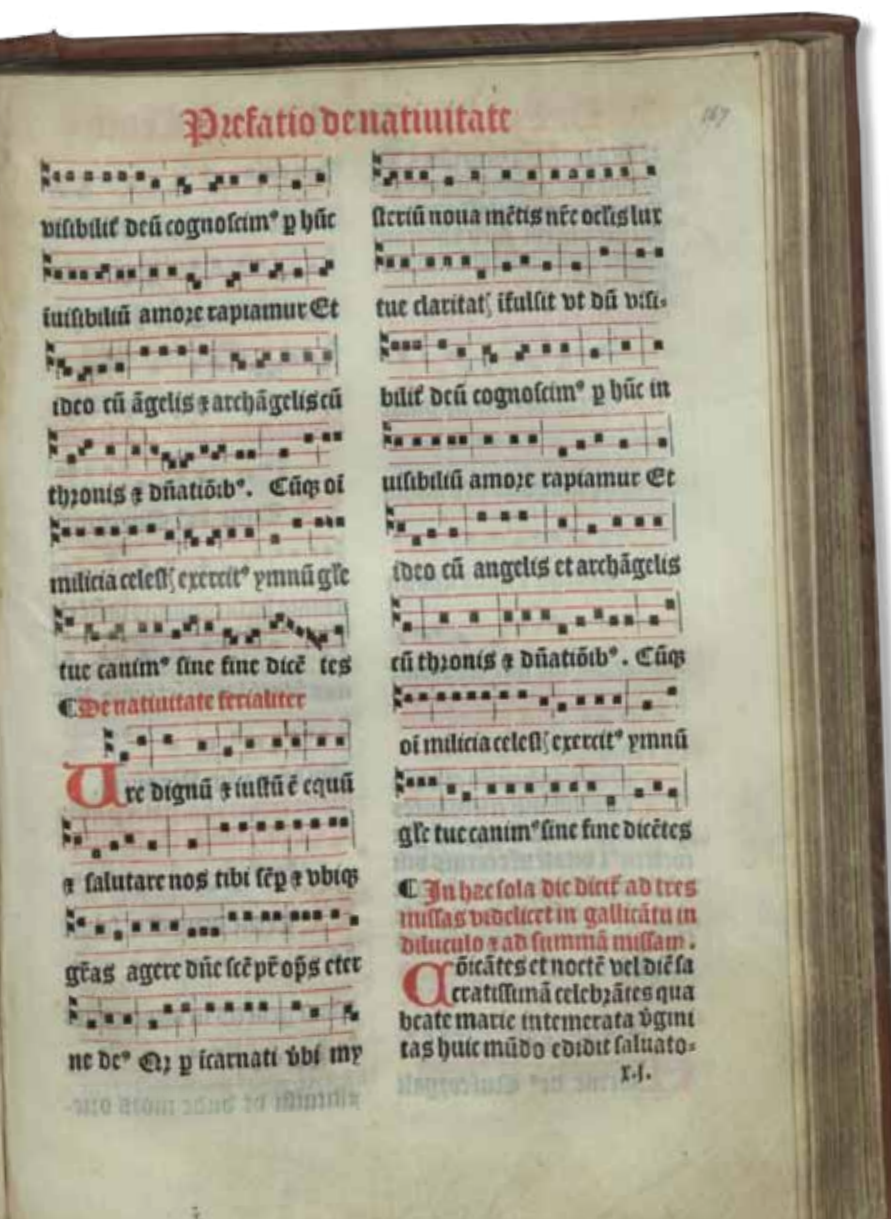 Prefatio de natiuitate
167
visibilit᷑ deū cognoscimꝰ ꝑ hūc
īuisibiliū amore rapiamur Et
ideo cū āgelis ⁊ archāgelis cū
thronis ⁊ dn̄atiōibꝰ. Cūqꝫ oī
milicia celestꝭ exercitꝰ ymnū gl̄e
tue canimꝰ sine fine dicē tes
¶ De natiuitate ferialiter
Uere dignū ⁊ iustū ē equū
⁊ salutare nos tibi sēꝑ ⁊ vbiqꝫ
gr̄as agere dn̄e scē pr̄ op̄s eter
ne deꝰ Qꝛ ꝑ īcarnati v̄bi my
steriū noua mētis nr̄e ocl̄is lux
tue claritatꝭ īfulsit vt dū visi⸗
bilit᷑ deū cognoscimꝰ ꝑ hūc in
uisibiliū amore rapiamur Et
ideo cū angelis et archāgelis
cū thronis ⁊ dn̄atiōibꝰ. Cūqꝫ
oī milicia celestꝭ exercitꝰ ymnū
gl̄e tue canimꝰ sine fine dicētes
¶ In hac sola die dicit᷑ ad tres
missas videlicet in gallicātu in
diluculo ⁊ ad summā missam.
Cōicātes et noctē vel diē sa
cratissimā celebrātes qua
beate marie intemerata v̄gini
tas huic mūdo edidit saluato⸗
r.j.